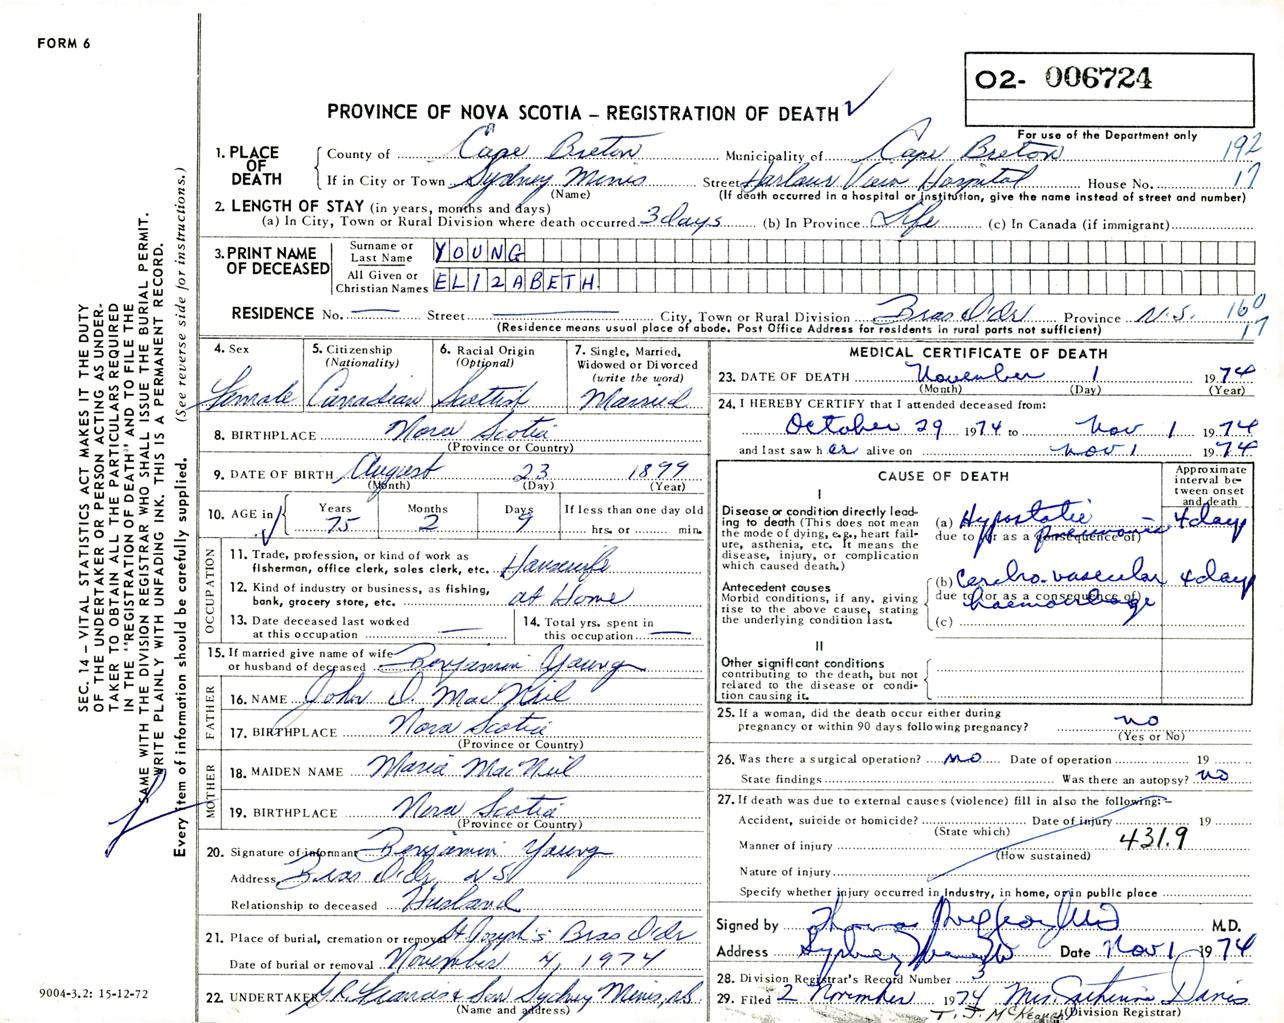 FORM 6
O2- 006724
PROVINCE OF NOVA SCOTIA – REGISTRATION OF DEATH
For use of the Department only
1. PLACE OF DEATH
County of Cape Breton Municipality of Cape Breton 192
If in City or Town Sydney Mines Street Harbour View Hospital House No. 17
(Name) (If death occurred in a hospital or institution, give the name instead of street and number)
2. LENGTH OF STAY (in years, months and days)
(a) In City, Town or Rural Division where death occurred 3 days (b) In Province Life (c) In Canada (if immigrant)
3. PRINT NAME OF DECEASED
Surname or Last Name YOUNG
All Given or Christian Names ELIZABETH
RESIDENCE No. — Street — City, Town or Rural Division Bras D'Or Province N.S. 160
(Residence means usual place of abode. Post Office Address for residents in rural parts not sufficient) 17
4. Sex
Female
5. Citizenship
(Nationality)
Canadian
6. Racial Origin
(Optional)
Scottish
7. Single, Married,
Widowed or Divorced
(write the word)
Married
8. BIRTHPLACE Nova Scotia
(Province or Country)
9. DATE OF BIRTH August 23 1899
(Month) (Day) (Year)
10. AGE in
Years Months Days If less than one day old
75 2 9 hrs. or min.
OCCUPATION
11. Trade, profession, or kind of work as
fisherman, office clerk, sales clerk, etc. Housewife
12. Kind of industry or business, as fishing,
bank, grocery store, etc. at Home
13. Date deceased last worked
at this occupation —
14. Total yrs. spent in
this occupation —
15. If married give name of wife
or husband of deceased Benjamin Young
FATHER
16. NAME John D. MacNeil
17. BIRTHPLACE Nova Scotia
(Province or Country)
MOTHER
18. MAIDEN NAME Maria MacNeil
19. BIRTHPLACE Nova Scotia
(Province or Country)
20. Signature of informant Benjamin Young
Address Bras D'Or NS
Relationship to deceased Husband
21. Place of burial, cremation or removal St Joseph's Bras D'Or
Date of burial or removal November 4, 1974
22. UNDERTAKER Francis & Son Sydney Mines, NS
(Name and address)
MEDICAL CERTIFICATE OF DEATH
23. DATE OF DEATH November 1 1974
(Month) (Day) (Year)
24. I HEREBY CERTIFY that I attended deceased from:
October 29 1974 to Nov 1 1974
and last saw her alive on Nov 1 1974
CAUSE OF DEATH
Approximate
interval be-
tween onset
and death
I
Disease or condition directly lead-
ing to death (This does not mean
the mode of dying, e.g., heart fail-
ure, asthenia, etc. It means the
disease, injury, or complication
which caused death.)
(a) Hypostatic pneumonia 4 days
due to (or as a consequence of)
Antecedent causes
Morbid conditions, if any, giving
rise to the above cause, stating
the underlying condition last.
(b) Cerebro-vascular 4 days
due to (or as a consequence of)
haemorrhage
(c)
II
Other significant conditions
contributing to the death, but not
related to the disease or condi-
tion causing it.
25. If a woman, did the death occur either during
pregnancy or within 90 days following pregnancy? no
(Yes or No)
26. Was there a surgical operation? no Date of operation 19
State findings Was there an autopsy? no
27. If death was due to external causes (violence) fill in also the following:-
Accident, suicide or homicide? Date of injury 19
(State which)
Manner of injury 431.9
(How sustained)
Nature of injury
Specify whether injury occurred in Industry, in home, or in public place
Signed by Thomas M.D.
Address Sydney Mines Date Nov 1 1974
28. Division Registrar's Record Number 3
29. Filed 2 November 1974 Mrs. Catherine Davis
T. J. McKeough (Division Registrar)
SEC. 14 – VITAL STATISTICS ACT MAKES IT THE DUTY
OF THE UNDERTAKER OR PERSON ACTING AS UNDER-
TAKER TO OBTAIN ALL THE PARTICULARS REQUIRED
IN THE "REGISTRATION OF DEATH" AND TO FILE THE
SAME WITH THE DIVISION REGISTRAR WHO SHALL ISSUE THE BURIAL PERMIT.
WRITE PLAINLY WITH UNFADING INK. THIS IS A PERMANENT RECORD.
Every item of information should be carefully supplied. (See reverse side for instructions.)
9004-3.2: 15-12-72